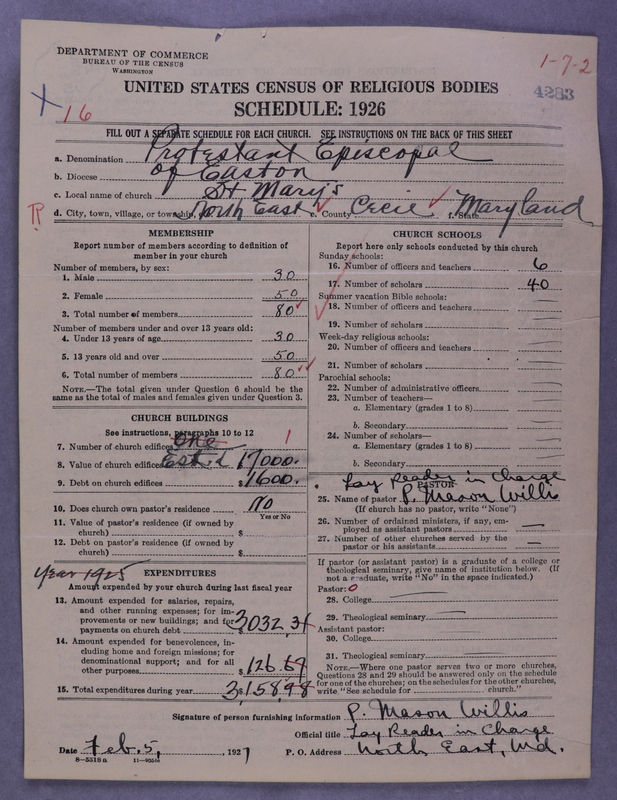 DEPARTMENT OF COMMERCE
BUREAU OF THE CENSUS
WASHINGTON
1-7-2
4283
X 16
UNITED STATES CENSUS OF RELIGIOUS BODIES
SCHEDULE: 1926
FILL OUT A SEPARATE SCHEDULE FOR EACH CHURCH. SEE INSTRUCTIONS ON THE BACK OF THIS SHEET
a. Denomination Protestant Episcopal
b. Diocese of Easton
c. Local name of church St Mary's
R d. City, town, village, or township North East e. County Cecil f. State Maryland
MEMBERSHIP
Report number of members according to definition of
member in your church
Number of members, by sex:
1. Male 30
2. Female 50
3. Total number of members 80
Number of members under and over 13 years old:
4. Under 13 years of age 30
5. 13 years old and over 50
6. Total number of members 80
NOTE.—The total given under Question 6 should be the
same as the total of males and females given under Question 3.
CHURCH BUILDINGS
See instructions, paragraphs 10 to 12
7. Number of church edifices One 1
8. Value of church edifices Est'd 17000.
9. Debt on church edifices $ 1600.
10. Does church own pastor's residence? No
Yes or No
11. Value of pastor's residence (if owned by
church) $
12. Debt on pastor's residence (if owned by
church) $
Year 1925 EXPENDITURES
Amount expended by your church during last fiscal year
13. Amount expended for salaries, repairs,
and other running expenses; for im-
provements or new buildings; and for
payments on church debt 3032.31
14. Amount expended for benevolences, in-
cluding home and foreign missions; for
denominational support; and for all
other purposes $ 126.67
15. Total expenditures during year $ 3158.98
CHURCH SCHOOLS
Report here only schools conducted by this church
Sunday schools:
16. Number of officers and teachers 6
17. Number of scholars 40
Summer vacation Bible schools:
18. Number of officers and teachers
19. Number of scholars
Week-day religious schools:
20. Number of officers and teachers
21. Number of scholars
Parochial schools:
22. Number of administrative officers
23. Number of teachers—
a. Elementary (grades 1 to 8)
b. Secondary
24. Number of scholars—
a. Elementary (grades 1 to 8)
b. Secondary
Lay Reader in Charge
PASTOR
25. Name of pastor P. Mason Willis
(If church has no pastor, write "None")
26. Number of ordained ministers, if any, em-
ployed as assistant pastors —
27. Number of other churches served by the
pastor or his assistants —
If pastor (or assistant pastor) is a graduate of a college or
theological seminary, give name of institution below. (If
not a graduate, write "No" in the space indicated.)
Pastor: 0
28. College
29. Theological seminary
Assistant pastor:
30. College
31. Theological seminary
NOTE.—Where one pastor serves two or more churches,
Questions 28 and 29 should be answered only on the schedule
for one of the churches; on the schedules for the other churches,
write "See schedule for church."
Signature of person furnishing information P. Mason Willis
Official title Lay Reader in Charge
Date Feb. 5, 1927 P. O. Address North East, Md.
8—5518a